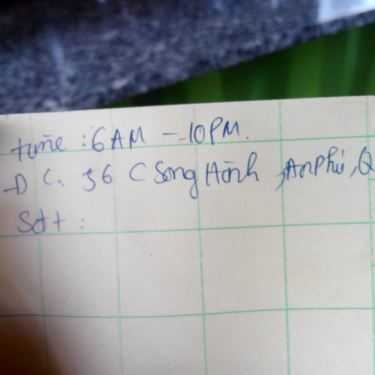 time : 6 AM - 10 PM.
- D C. 36 C Song Hành, An Phú, Q
Sdt :